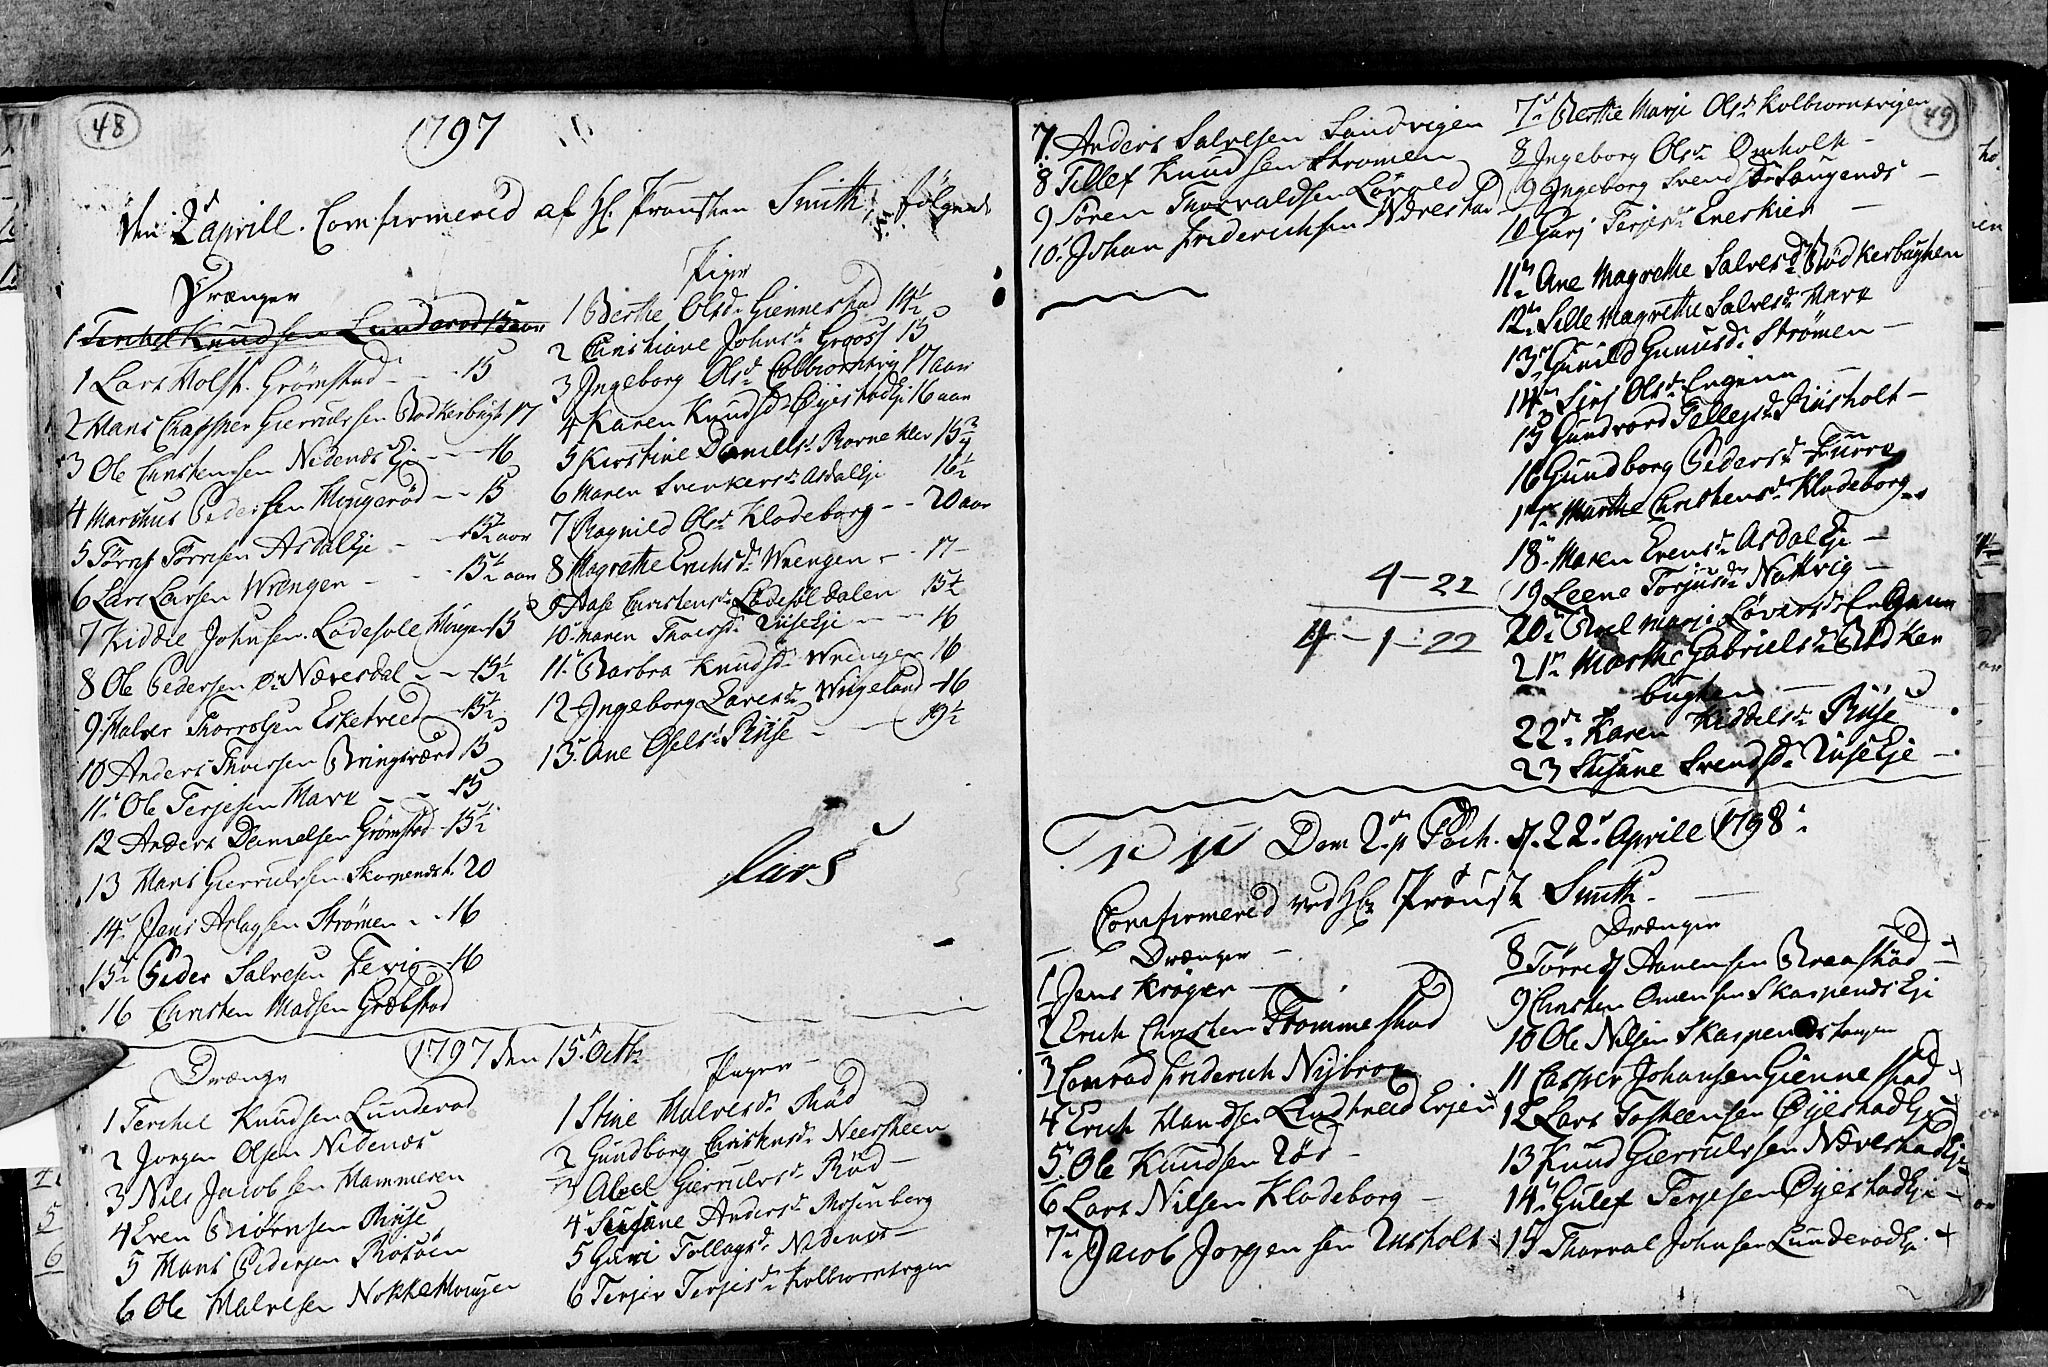 48
1797
den 2d aprill. Confirmered af H. Prousten Smith følgende
Drænger
1 Terchel Knudsen Lunderod 15 aar
1 Lars Holst. Grømstad - - 15
2 Hans Chasper Gierulvsen Bodkerbugt 17
3 Ole Christensen Nedenæs Eje - - 16
4 Marchus Pedersen Haugerød - - 15
5 Tørris Tørrisen Asdal Eje - 15½ aar
6 Lars Larsen Wrengen - - 15½ aar
7 Kiddel Johnsen Lødesøll 15
8 Ole Pedersen Næresdal - - 15½
9 Halver Thorrolsen Esketveed 15½
10 Anders Thorsen Bringsværd 15
11 Ole Terjesen Mark - - 15
12 Anders Danielsen Grømstad 15½
13 Hans Gierulvsen 20
14 Jens Aslagsen Strømen - - 16
15 Peder Salvesen Fevig 16
16 Christen Madsen Grøbstad
Piger
1 Berthe Olsd. Giennestad 14½
2 Christiane Johnsd. Groos 15
3 Ingeborg Olsd. Colbiornsvig 17 aar
4 Karen Knudsd. Øyestad Eje 16 aar
5 Kirstine Danielsd. 15¾
6 Maren Svenkersd. Asdal Eje 16½
7 Ragnild Olsd. Klodeborg - - 20 aar
8 Magrethe Erichsd. Wrengen - - 17 -
9 Aase Christensd. Lødesøl dalen 15½
10 Maren Thorsd. Riise Eje - - 16
11 Barbra Knudsd. Wrengen 16
12 Ingeborg Larsd. Wrigeland 16
13 Ane Riise - - 19½
Lars
1797 den 15 Octb.
Drænge
1 Terchel Knudsen Lunderod
2 Jorgen Olsen Nedenæs
3 Nils Jacobsen Hammeren
4 Even Biørnsen Riise
5 Hans Pedersen
6 Ole Halvesen
Piger -
1 Stine Halvesd. Rød
2 Gundborg Christensd. Neersteen
3 Abel Gierulvsd. Rød -
4 Susane Andersd. Rosenberg
5 Guri Tollagsd. Nedenæs -
6 Terjer Terjesd. Kolbiornsvigen
49
7. Anders Salvesen Sandvigen
8 Tellef Knudsen Strømen
9 Søren Thorvaldsen Løvold
10. Johan Friderichsen Nærestad
4 - 22
4 - 1 - 22
7 Berthe Marje Olsd. Kolbiornsvigen
8 Ingeborg Olsd. Omholt -
9 Ingeborg Svensd. Saugenæs -
10 Gurj Terjesd. Eneskier -
11 Ane Magrethe Salvesd. Bødkerbugten
12 Sille Magrethe Salvesd. Mark
13 Gunild Gunusd. Strømen -
14 Sirj Olsd. Engenen -
15 Gundrord Tellefsd. Riisholt -
16 Gundborg Pedersd. Furre
17 Marthe Christensd. Klodeborg
18 Maren Evensd. Asdal Eje -
19 Leene Torjusd. Nattvig -
20 Abel Marje
21 Marthe Gabrielsd. Bødker
bugten -
22 Karen Kiddelsd. Riise
23 Susane Svendsd. Riise Eje -
Dom 2. p Pasch. d. 22 Aprill 1798.
Confirmered ved Hr. Proust Smith.
Drænger -
1 Jens Krøger -
2 Erich Christen Trommestad
3 Conrad Friderich Nijbroe
4 Erich Handsen Lindtveed
5 Ole Knudsen Rød -
6 Lars Nilsen Klodeborg -
7 Jacob Jorgensen Unsholt
Drænger
8 Tørres Aanensen Braastad +
9 Christen Omensen Skarpenæs Eje
10 Ole Nilsen Skarpenæs tangen
11 Casper Johansen Giennestad +
12 Lars Tosteensen Øyestad Eje
13 Knud Gierulvsen Nærestad Eje
14 Gulef Terjesen Øyestad Eje -
15 Thorval Johnsen Lunderod E. +